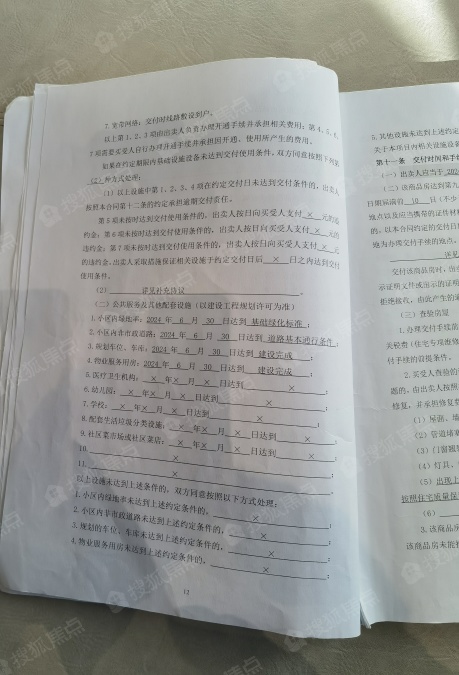 7. 宽带网络：交付时线路敷设到户。
以上第1、2、3项由出卖人负责办理开通手续并承担相关费用；第4、5、6、
7项需要买受人自行办理开通手续并承担因开通、使用所产生的费用。
如果在约定期限内基础设施设备未达到交付使用条件，双方同意按照下列第
（2）种方式处理：
（1）以上设施中第1、2、3、4项在约定交付日未达到交付使用条件的，出卖人
按照本合同第十二条的约定承担逾期交付责任。
第5项未按时达到交付使用条件的，出卖人按日向买受人支付 × 元的违
约金；第6项未按时达到交付使用条件的，出卖人按日向买受人支付 × 元的
违约金；第7项未按时达到交付使用条件的，出卖人按日向买受人支付 × 元
的违约金。出卖人采取措施保证相关设施于约定交付日后 × 日之内达到交付
使用条件。
（2） 详见补充协议
（二）公共服务及其他配套设施（以建设工程规划许可为准）
1.小区内绿地率：2024 年 6 月 30 日达到 基础绿化标准；
2.小区内非市政道路：2024 年 6 月 30 日达到 道路基本通行条件；
3.规划车位、车库：2024 年 6 月 30 日达到 建设完成；
4.物业服务用房：2024 年 6 月 30 日达到 建设完成；
5.医疗卫生机构：× 年 × 月 × 日达到 ×；
6.幼儿园：× 年 × 月 × 日达到 ×；
7.学校：× 年 × 月 × 日达到 ×；
8.配套生活垃圾分类设施：× 年 × 月 × 日达到 ×；
9.社区菜市场或社区菜店：× 年 × 月 × 日达到 ×；
10. ×；
11. ×；
以上设施未达到上述条件的，双方同意按照以下方式处理：
1.小区内绿地率未达到上述约定条件的， ×；
2.小区内非市政道路未达到上述约定条件的， ×；
3.规划的车位、车库未达到上述约定条件的， ×；
4.物业服务用房未达到上述约定条件的， ×；
12
5.其他设施未达到上述约定
关于本项目内相关设施设备
第十一条 交付时间和手续
（一）出卖人应当于 202
（二）该商品房达到第九
日期届满前 10 日（不少
地点以及应当携带的证件材料
的，以本合同约定的交付
地为办理交付手续的地点。
交付该商品房时，出卖
示证明文件或出示的证明
拒绝接收，由此产生的逾
（三）查验房屋
1.办理交付手续前
关税费（住宅专项维修
付手续的前提条件。
2.买受人查验的
题的，由出卖人按照
修复，并承担修复
（1）屋面、墙
（2）管道堵塞
（3）门窗翘裂
（4）灯具、
（5）出现上
按照住宅质量保
（6）
3.该商品房
该商品房未能按
搜狐焦点